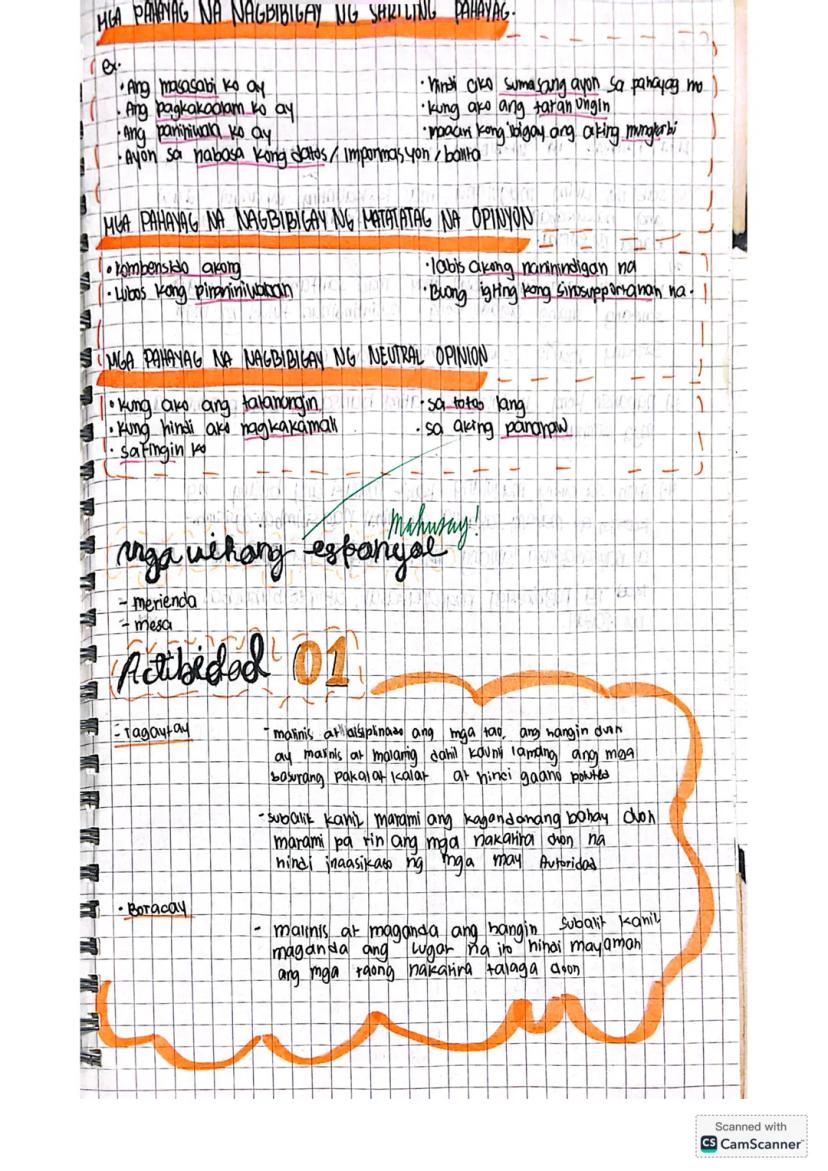 MGA PAHAYAG NA NAGBIBIGAY NG SARILING PAHAYAG.
ex.
• Ang masasabi ko ay
• Ang pagkakaalam ko ay
• Ang paniniwala ko ay
• Ayon sa nabasa kong datos / impormasyon / balita
• hindi ako sumasang ayon sa pahayag mo
• kung ako ang tatanungin
• maaari kong ibigay ang aking mungkahi
MGA PAHAYAG NA NAGBIBIGAY NG MATATATAG NA OPINYON
• kombensido akong
• Lubos kong pinaniniwalaan
• labis akong naninindigan na
• Buong igting kong sinusuportahan na.
MGA PAHAYAG NA NAGBIBIGAY NG NEUTRAL OPINION
• kung ako ang tatanungin
• kung hindi ako nagkakamali
• sa tingin ko
• sa totoo lang
• sa aking pananaw
Mahusay!
mga wikang espanyol
- merienda
- mesa
Actibidad 01
- Tagaytay
- malinis at disiplinado ang mga tao, ang hangin duon
ay malinis at malamig dahil kaunti lamang ang mga
basurang pakalat kalat at hindi gaano polluted
- subalit kahit marami ang kagandahang bahay duon
marami pa rin ang mga nakatira duon na
hindi inaasikaso ng mga may Autoridad
• Boracay
- malinis at maganda ang hangin subalit kahit
maganda ang lugar na ito hindi mayaman
ang mga taong nakatira talaga doon
Scanned with
CS CamScanner